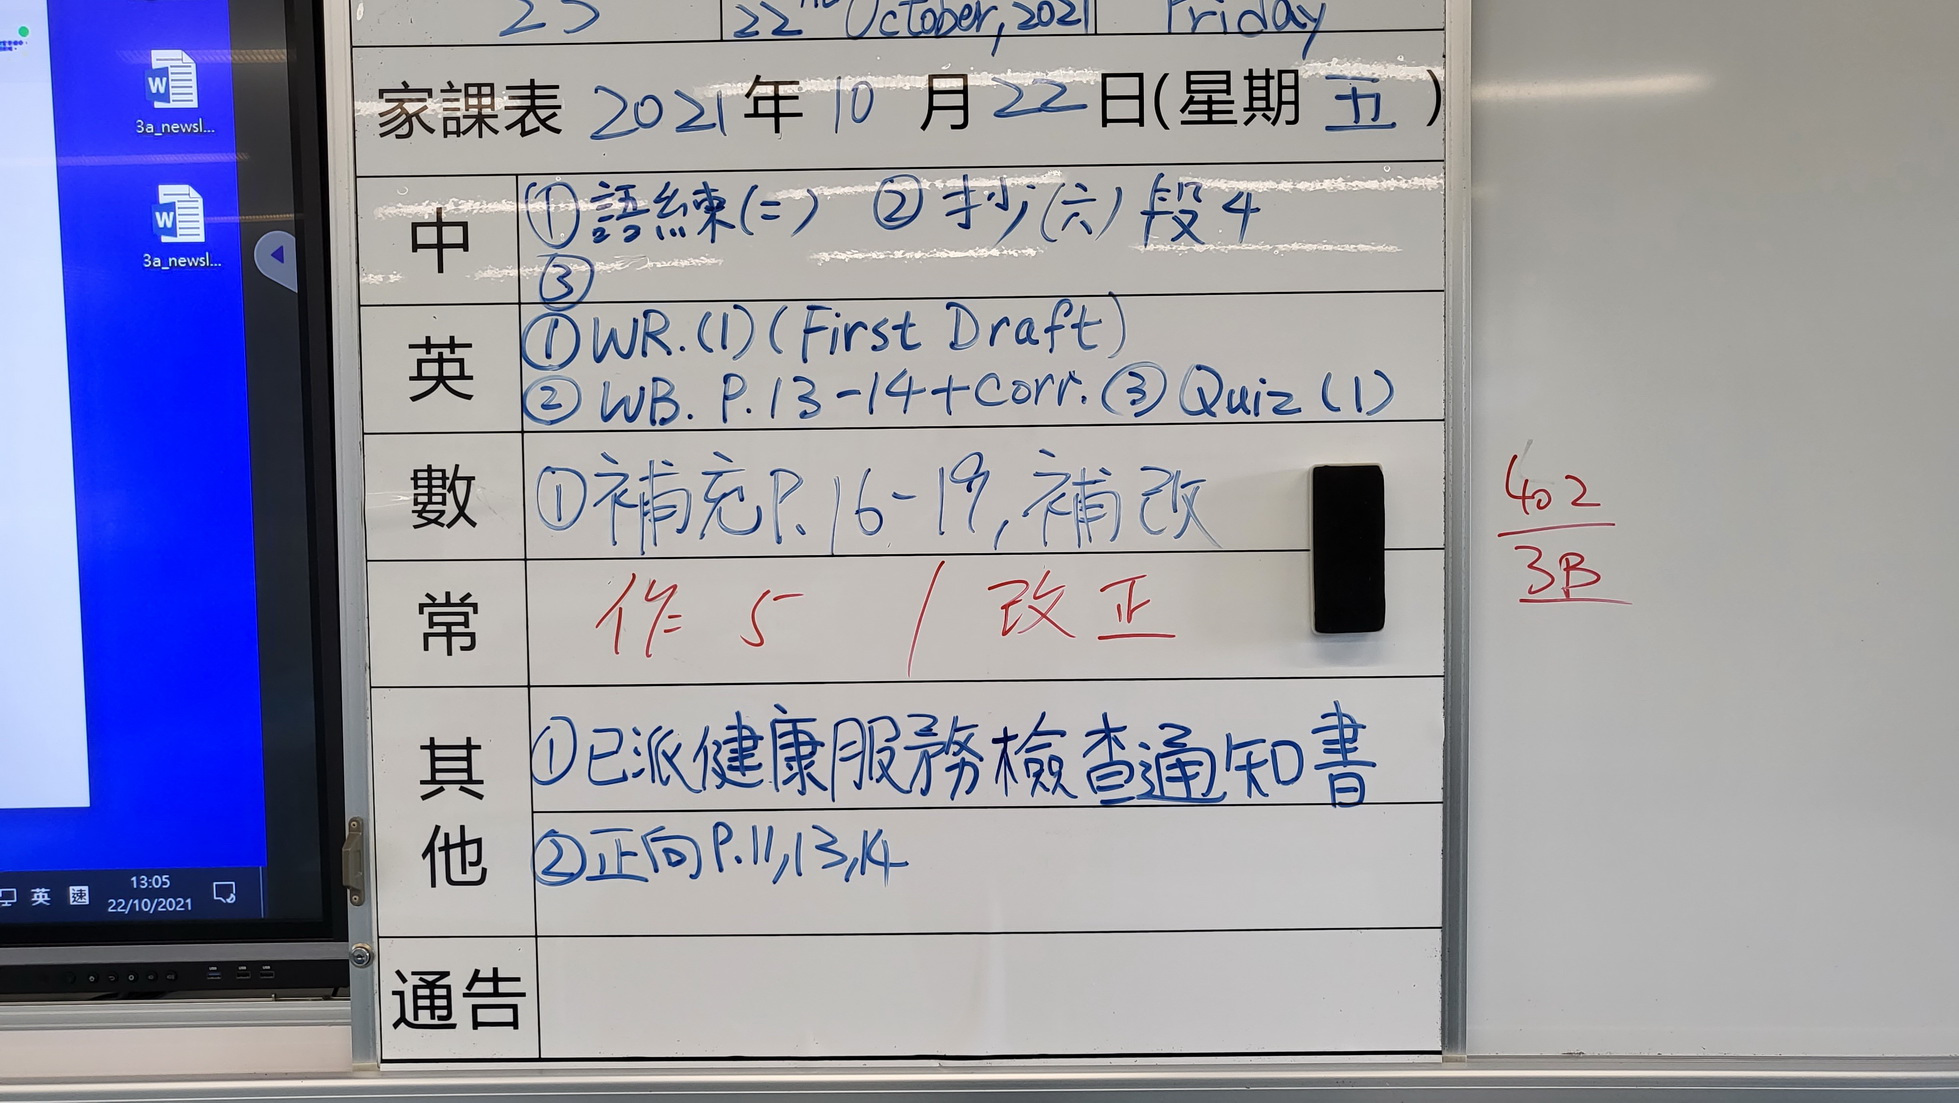 22nd October, 2021 Friday
家課表 2021年 10 月 22 日(星期 五 )
中 ①語練(二) ②抄(六)段4
③
英 ①WR.(1)(First Draft)
②WB. P.13-14+Corr. ③Quiz(1)
數 ①補充P.16-19,補改
常 作5 / 改正
其他 ①已派健康服務檢查通知書
②正向P.11,13,14
通告
402
3B
3a_newsl...
3a_newsl...
英 速 13:05
22/10/2021